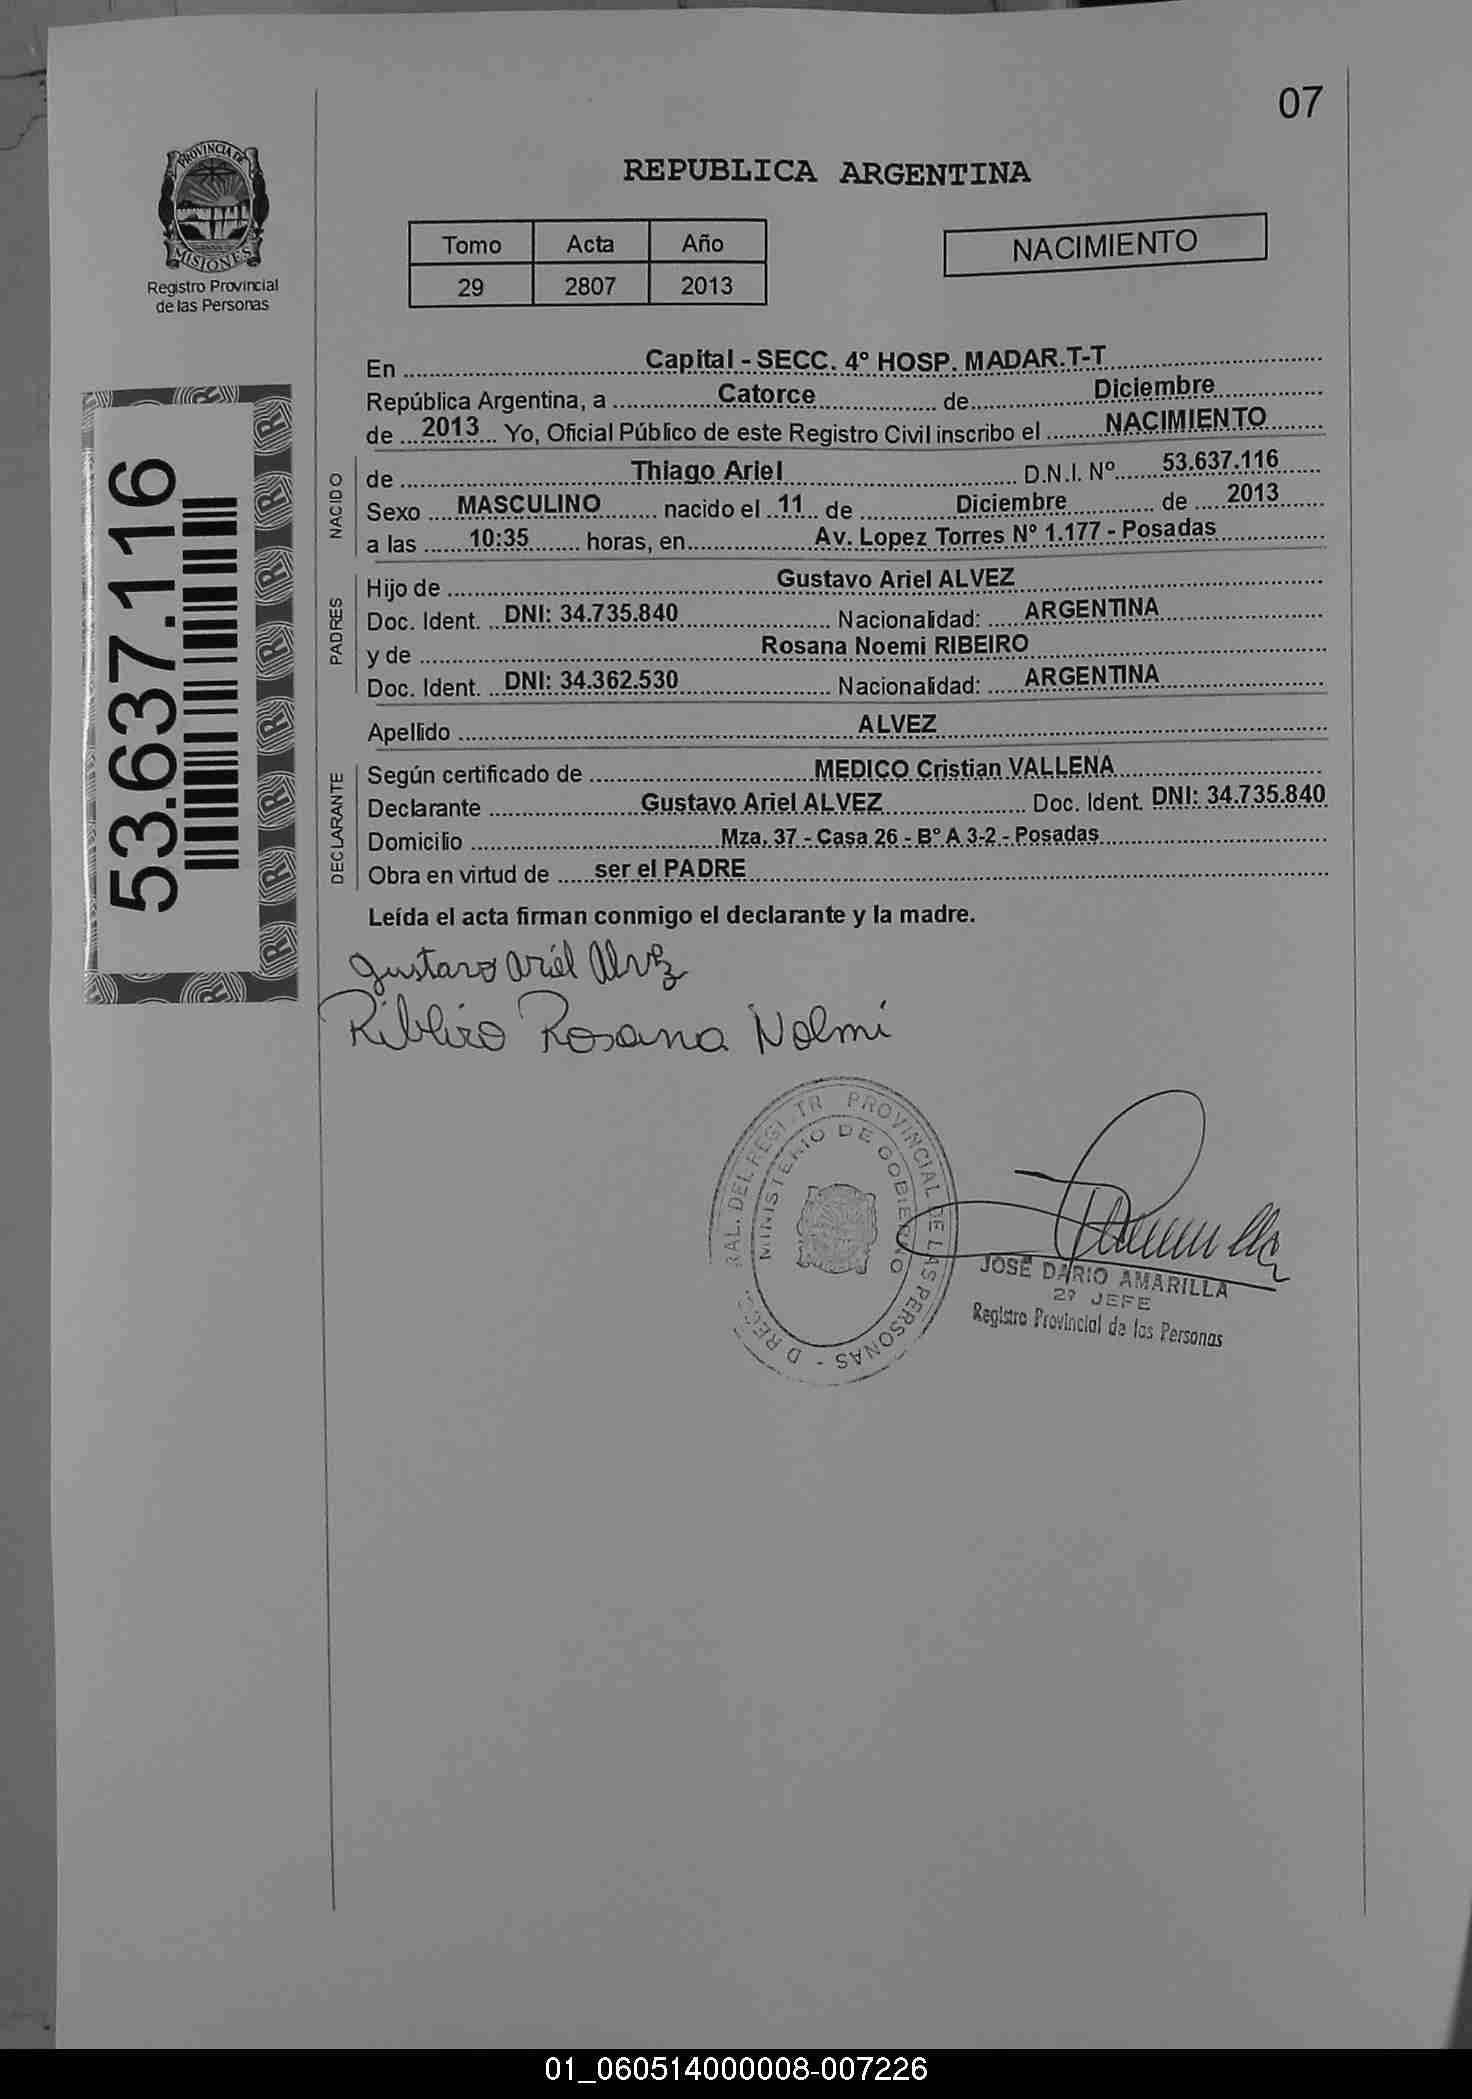 07
PROVINCIA DE
MISIONES
Registro Provincial
de las Personas
REPUBLICA ARGENTINA
Tomo Acta Año
29 2807 2013
NACIMIENTO
53.637.116
En Capital - SECC. 4º HOSP. MADAR.T-T
República Argentina, a Catorce de Diciembre
de 2013 Yo, Oficial Público de este Registro Civil inscribo el NACIMIENTO
NACIDO
de Thiago Ariel D.N.I. Nº 53.637.116
Sexo MASCULINO nacido el 11 de Diciembre de 2013
a las 10:35 horas, en Av. Lopez Torres Nº 1.177 - Posadas
PADRES
Hijo de Gustavo Ariel ALVEZ
Doc. Ident. DNI: 34.735.840 Nacionalidad: ARGENTINA
y de Rosana Noemi RIBEIRO
Doc. Ident. DNI: 34.362.530 Nacionalidad: ARGENTINA
Apellido ALVEZ
DECLARANTE
Según certificado de MEDICO Cristian VALLENA
Declarante Gustavo Ariel ALVEZ Doc. Ident. DNI: 34.735.840
Domicilio Mza. 37 - Casa 26 - Bº A 3-2 - Posadas
Obra en virtud de ser el PADRE
Leída el acta firman conmigo el declarante y la madre.
Gustavo Ariel Alvez
Ribeiro Rosana Noemi
PROVINCIAL DE LAS PERSONAS
MINISTERIO DE GOBIERNO
JOSE DARIO AMARILLA
2º JEFE
Registro Provincial de las Personas
01_060514000008-007226